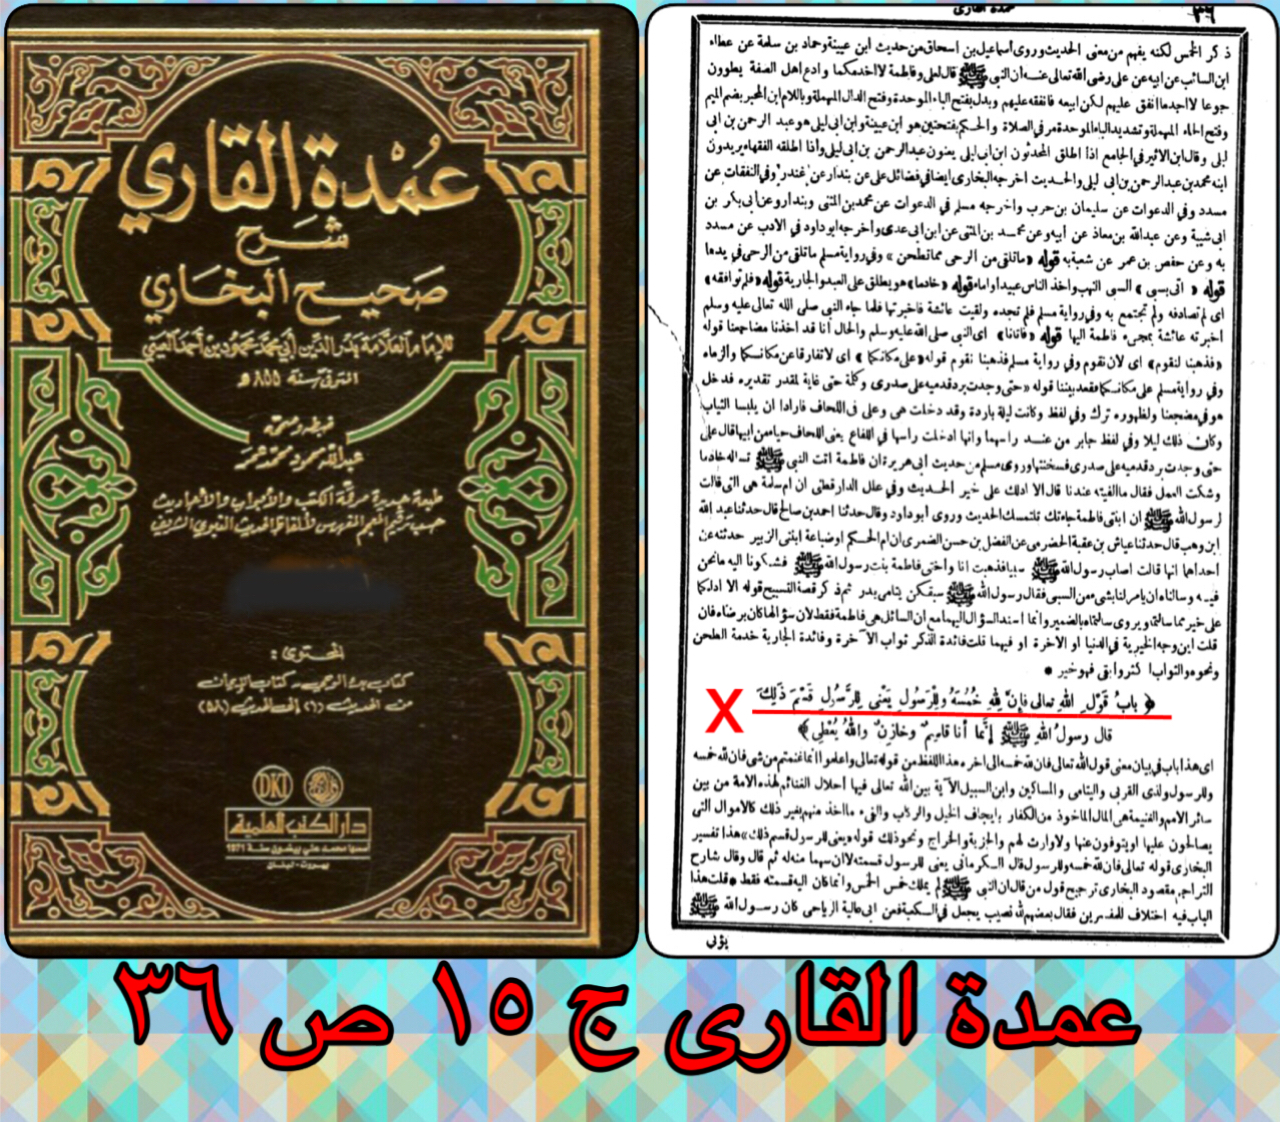 عُمْدة القَاري
شَرح
صَحيح البخَاري
للإمام العلّامة بَدر الدِّين أبي محمَّد محمُود بن أحمَد العَيني
المتوفى سنة ٨٥٥ هـ
ضبطه وصحّحه
عبد الله محمود محمد عمر
طبعة جديدة مرقّمة الكتب والأبواب والأحاديث
حسب ترقيم المعجم المفهرس لألفاظ الحديث النبوي الشريف
المحتوى:
كتاب بدء الوحي - كتاب الإيمان
من الحديث (١) إلى الحديث (٥٨)
DKI
دار الكتب العلمية
أسسها محمد علي بيضون سنة 1971
بيروت - لبنان
عمدة القارى
٣٦
ذكر الخمس لكنه يفهم من معنى الحديث وروى اسماعيل بن اسحاق من حديث ابن عيينة وحماد بن سلمة عن عطاء
ابن السائب عن ابيه عن على رضى الله تعالى عنه ان النبى ﷺ قال لعلى وفاطمة لا اخدمكما وادع اهل الصفة يطوون
جوعا لا اجد ما انفق عليهم لكن ابيعه فانفقه عليهم وبدل بفتح الباء الموحدة وفتح الدال المهملة وباللام ابن المحبر بضم الميم
وفتح الحاء المهملة وتشديد الباء الموحدة مر فى الصلاة والحكم بفتحتين هو ابن عيينة وابن ابى ليلى هو عبد الرحمن بن ابى
ليلى وقال ابن الاثير فى الجامع اذا اطلق المحدثون ابن ابى ليلى يعنون عبد الرحمن بن ابى ليلى واذا اطلقه الفقهاء يريدون
ابنه محمد بن عبد الرحمن بن ابى ليلى والحديث اخرجه البخارى ايضا فى فضائل على عن بندار عن غندر وفى النفقات عن
مسدد وفى الدعوات عن سليمان بن حرب واخرجه مسلم فى الدعوات عن محمد بن المثنى وبندار وعن ابى بكر بن
ابى شيبة وعن عبد الله بن معاذ عن أبيه وعن محمد بن المثنى عن ابن ابى عدى واخرجه ابو داود فى الادب عن مسدد
به وعن حفص بن عمر عن شعبة به قوله «ما تلقى من الرحى مما تطحن» وفى رواية مسلم ما تلقى من الرحى فى يدها
قوله «اتى بسبى» السبى النهب واخذ الناس عبيدا واماء قوله «خادما» هو يطلق على العبد والجارية قوله «فلم توافقه»
اى لم تصادفه ولم تجتمع به وفى رواية مسلم فلم تجده ولقيت عائشة فاخبرتها فلما جاء النبى صلى الله تعالى عليه وسلم
اخبرته عائشة بمجىء فاطمة اليها قوله «فاتانا» اى النبى صلى الله عليه وسلم والحال أنا قد اخذنا مضاجعنا قوله
«فذهبنا لنقوم» اى لان نقوم وفى رواية مسلم فذهبنا نقوم قوله «على مكانكما» اى لا تفارقا عن مكانكما والزماه
وفى رواية مسلم على مكانكما فقعد بيننا قوله «حتى وجدت برد قدميه على صدرى» وكلمة حتى غاية لمقدر تقديره فدخل
هو فى مضجعنا ولظهوره ترك وفى لفظ وكانت ليلة باردة وقد دخلت هى وعلى فى اللحاف فارادا ان يلبسا الثياب
وكان ذلك ليلا وفى لفظ جابر من عند رأسهما وانها ادخلت رأسها فى اللفاع يعنى اللحاف حياء من ابيها قال على
حتى وجدت برد قدميه على صدرى فسخنتها وروى مسلم من حديث ابى هريرة ان فاطمة اتت النبى ﷺ تساله خادما
وشكت العمل فقال ما الفيته عندنا قال الا ادلك على خير الحديث وفى علل الدارقطنى ان ام سلمة هى التى قالت
لرسول الله ﷺ ان ابنتى فاطمة جاءتك تلتمسك الحديث وروى أبو داود وقال حدثنا احمد بن صالح قال حدثنا عبد الله
ابن وهب قال حدثنا عياش بن عقبة الحضرمى عن الفضل بن حسن الضمرى ان ام الحكم او ضباعة ابنتى الزبير حدثته عن
احداهما انها قالت اصاب رسول الله ﷺ سبيا فذهبت انا واختى فاطمة بنت رسول الله ﷺ فشكونا اليه ما نحن
فيه وسالناه ان يامر لنا بشىء من السبى فقال رسول الله ﷺ سبقكن يتامى بدر ثم ذكر قصة التسبيح قوله الا ادلكما
على خير مما سالتما ويروى سالتماه بالضمير وانما اسند السؤال اليهما مع ان السائل هى فاطمة فقط لان سؤالها كان برضاه فان
قلت اين وجه الخيرية فى الدنيا او الآخرة او فيهما قلت فائدة الذكر ثواب الآخرة وفائدة الجارية خدمة الطحن
ونحوه والثواب اكثر وابقى فهو خير *
﴿ بابُ قَوْلِ اللهِ تعالى فإنَّ للهِ خُمُسَهُ ولِلرَّسُولِ يَعْنى لِلرَّسُولِ قَسْمَ ذَلِكَ
X
قال رسولُ اللهِ ﷺ إنَّما أنا قاسِمٌ وخازِنٌ واللهُ يُعْطِى ﴾
اى هذا باب فى بيان معنى قول الله تعالى فان لله خمسه الى اخره هذا اللفظ من قوله تعالى واعلموا انما غنمتم من شىء فان لله خمسه
وللرسول ولذى القربى واليتامى والمساكين وابن السبيل الآية بين الله تعالى فيها أحلال الغنائم لهذه الامة من بين
سائر الامم والغنيمة هى المال الماخوذ من الكفار بايجاف الخيل والركاب والفىء ما اخذ منهم بغير ذلك كالاموال التى
يصالحون عليها او يتوفون عنها ولا وارث لهم والجزية والخراج ونحو ذلك قوله «يعنى للرسول قسم ذلك» هذا تفسير
البخارى قوله تعالى فان لله خمسه وللرسول قال الكرمانى يعنى للرسول قسمته لا ان سهما منه له ثم قال وقال شارح
التراجم مقصود البخارى ترجيح قول من قال ان النبى ﷺ لم يملك خمس الخمس وانما كان اليه قسمته فقط * قلت هذا
الباب فيه اختلاف للمفسرين فقال بعضهم لله نصيب يجعل فى الكعبة فعن ابى عالية الرياحى كان رسول الله ﷺ
يؤتى
عمدة القارى ج ١٥ ص ٣٦